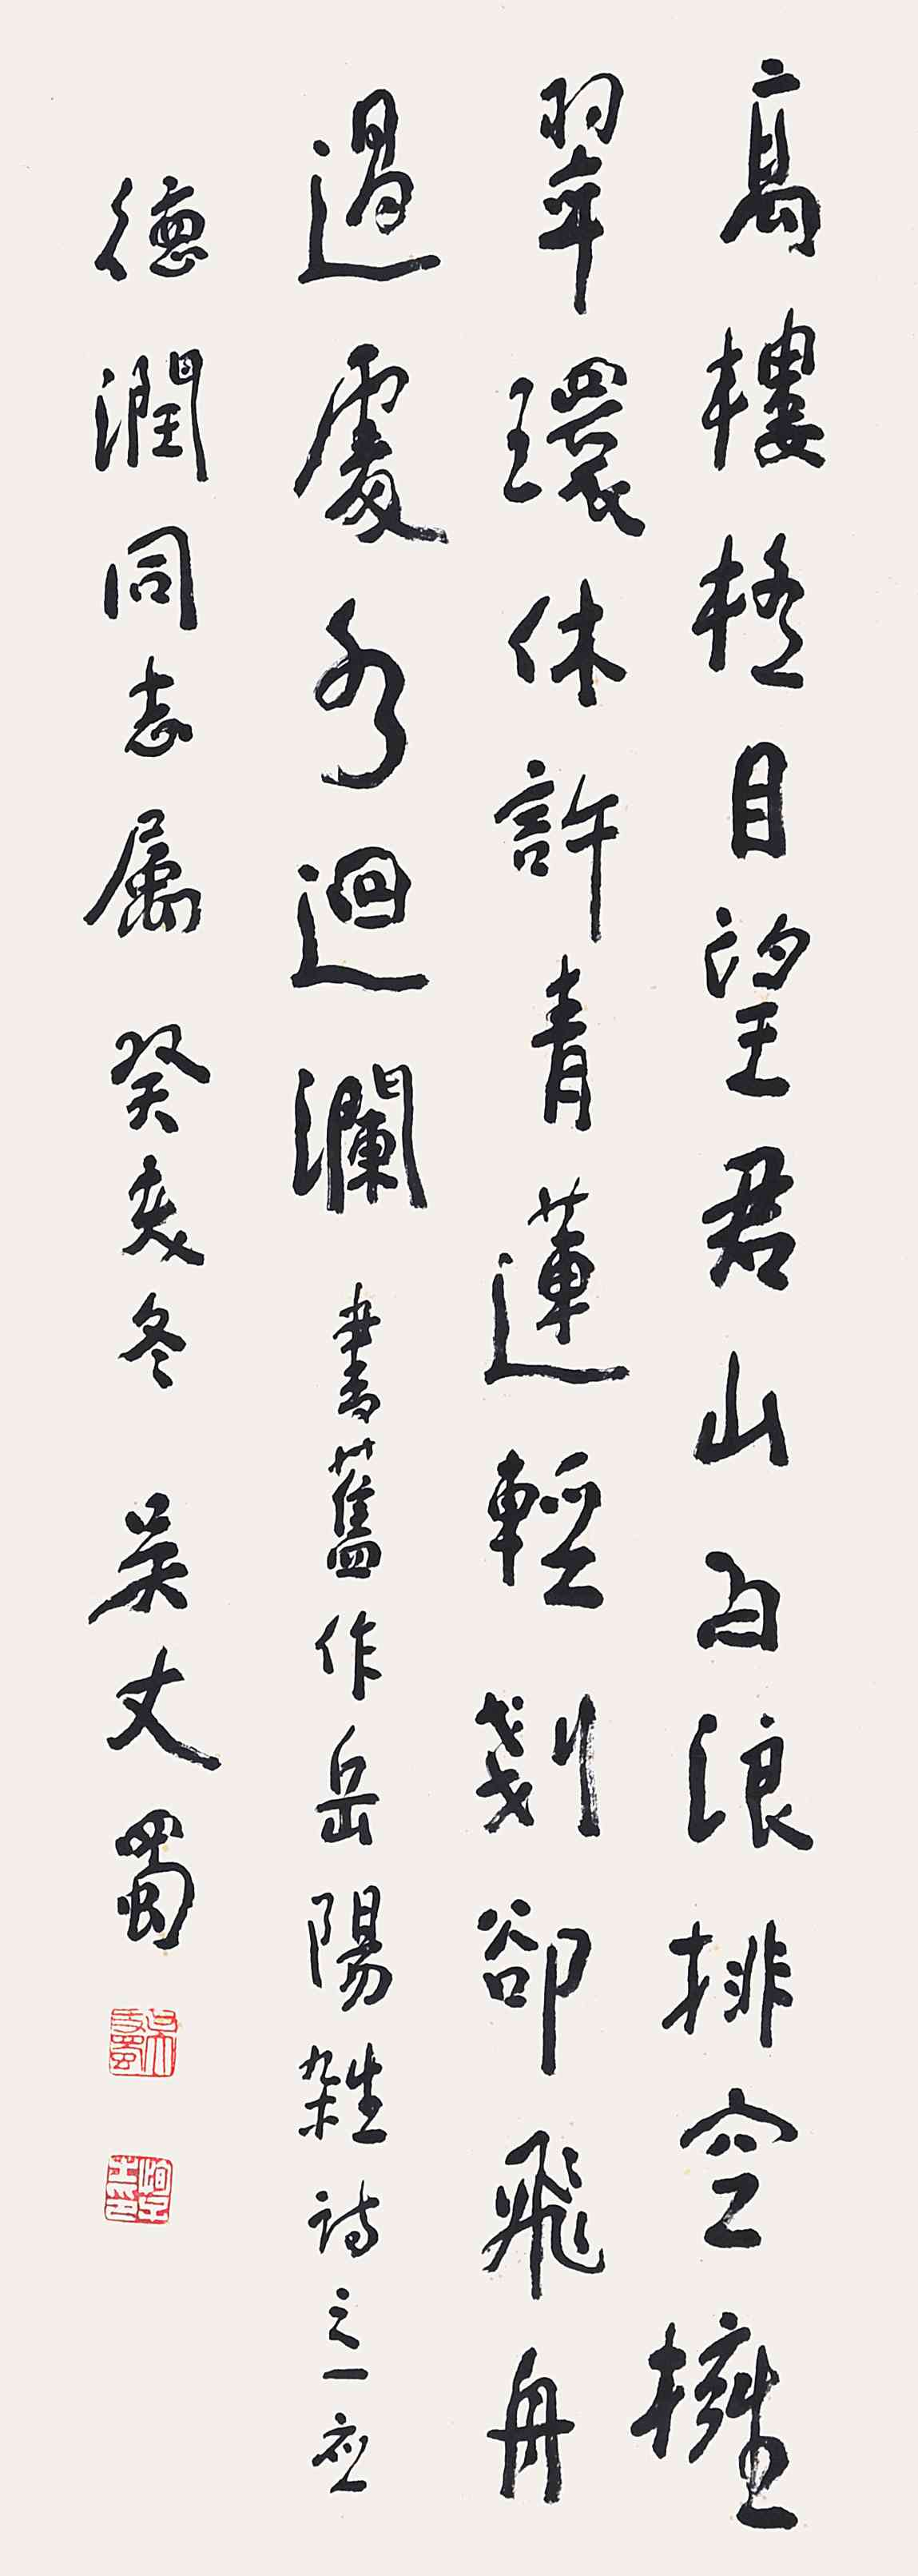 高樓極目望君山白浪排空擁
翠環休許青蓮輕剗卻飛舟
過處水迴瀾 書舊作岳陽雜詩之一應
德潤同志屬 癸亥冬 吳丈蜀
吳丈蜀